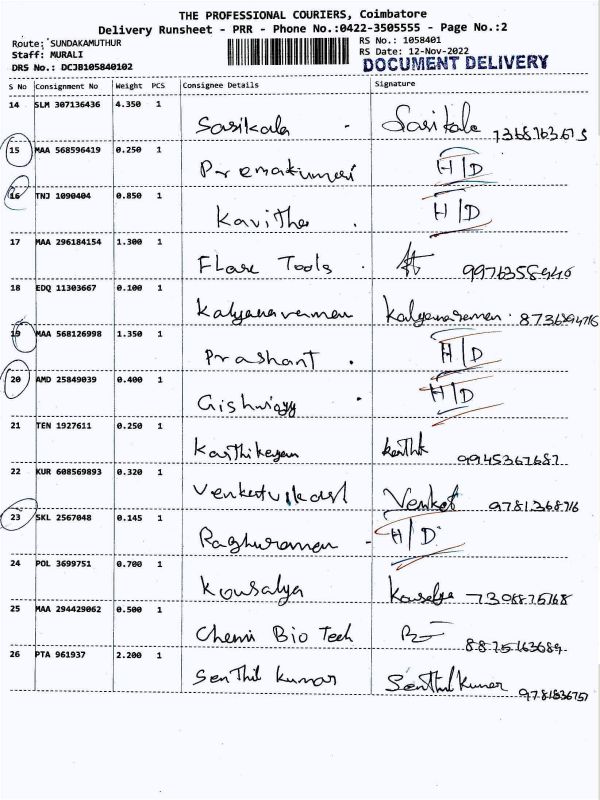 THE PROFESSIONAL COURIERS, Coimbatore
Delivery Runsheet - PRR - Phone No.:0422-3505555 - Page No.:2
Route: SUNDAKAMUTHUR RS No.: 1058401
Staff: MURALI RS Date: 12-Nov-2022
DRS No.: DCJB105840102 DOCUMENT DELIVERY
S No Consignment No Weight PCS Consignee Details Signature
14 SLM 307136436 4.350 1 Sasikala Sasikala
15 MAA 568596419 0.250 1 Premakumari H/D
16 TNJ 1090404 0.850 1 Kavitha H/D
17 MAA 296184154 1.300 1 Flare Tools
18 EDQ 11303667 0.100 1 Kalyanaraman Kalyanaraman 8736894716
19 MAA 568126998 1.350 1 Prashant H/D
20 AMD 25849039 0.400 1 H/D
21 TEN 1927611 0.250 1 Karthikeyan 9945367687
22 KUR 608569893 0.320 1 Venkat
23 SKL 2567048 0.145 1 Raghuraman H/D
24 POL 3699751 0.700 1 Kowsalya
25 MAA 294429062 0.500 1 Chemi Bio Tech 8875163689
26 PTA 961937 2.200 1 Senthil kumar Senthil kumar